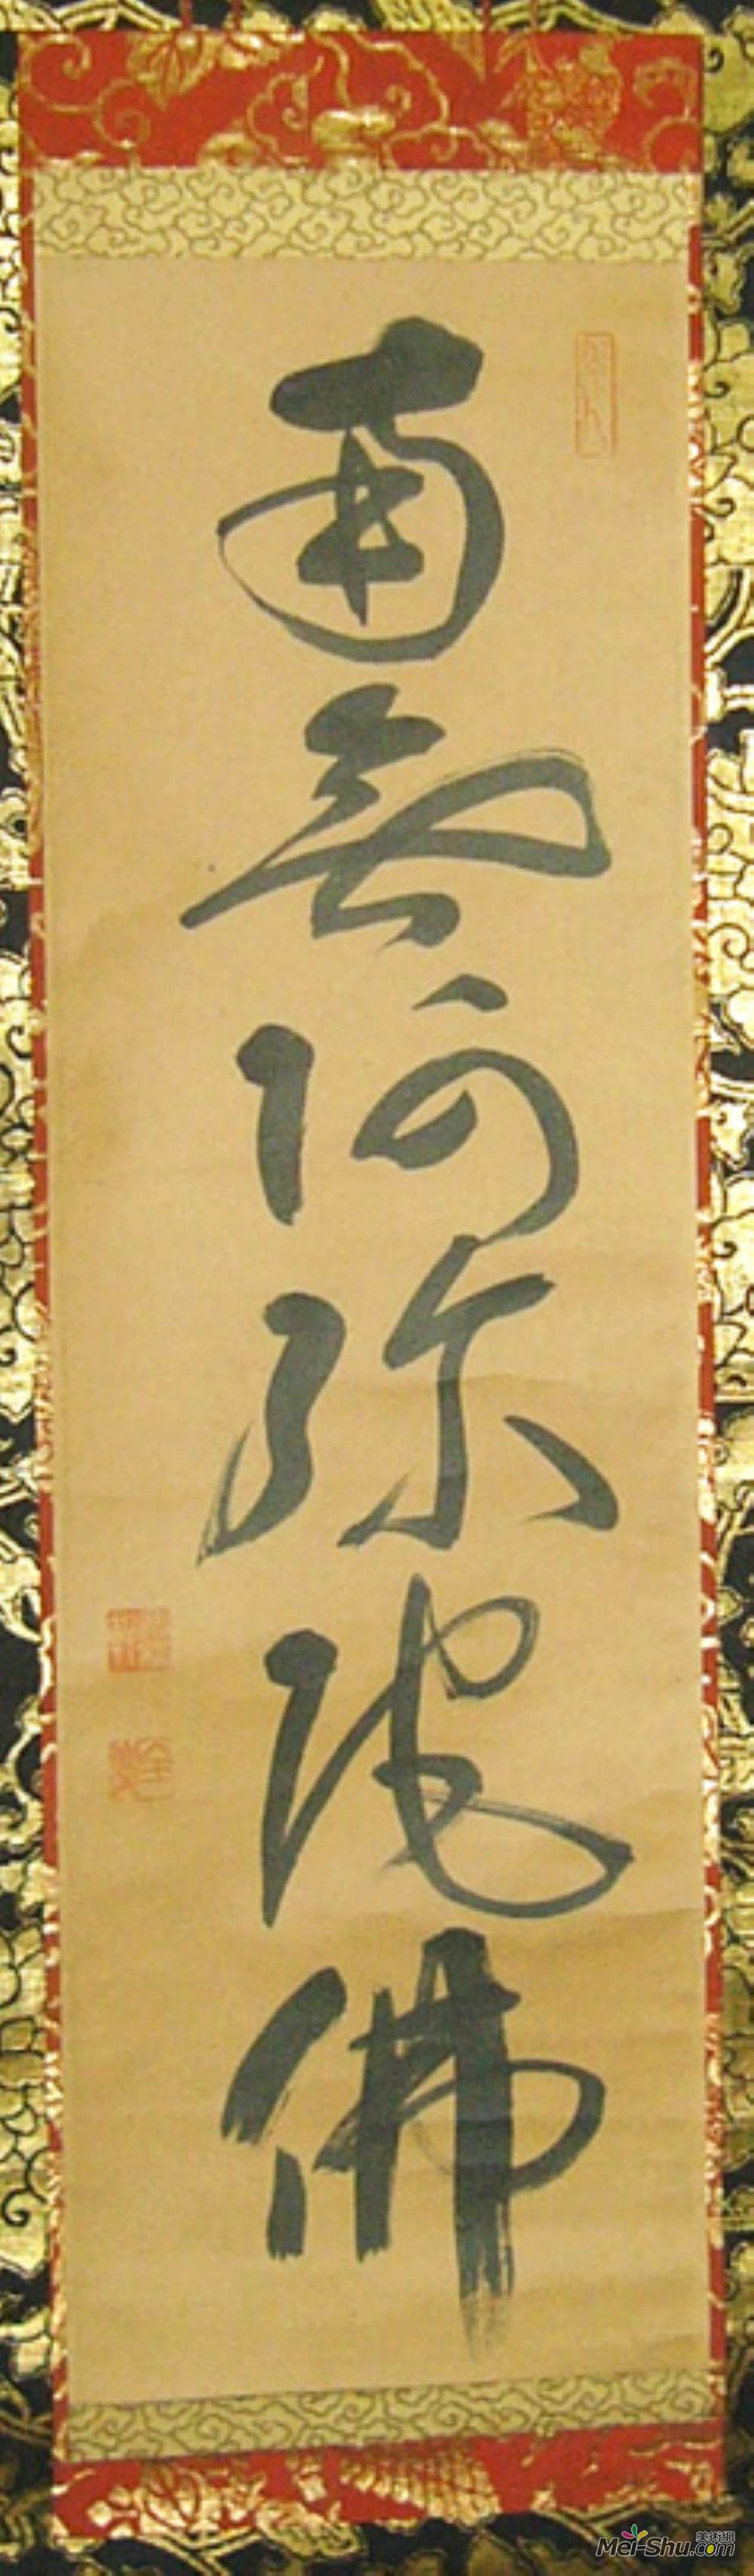 南無阿弥陀佛
美術網
Mei-Shu.com